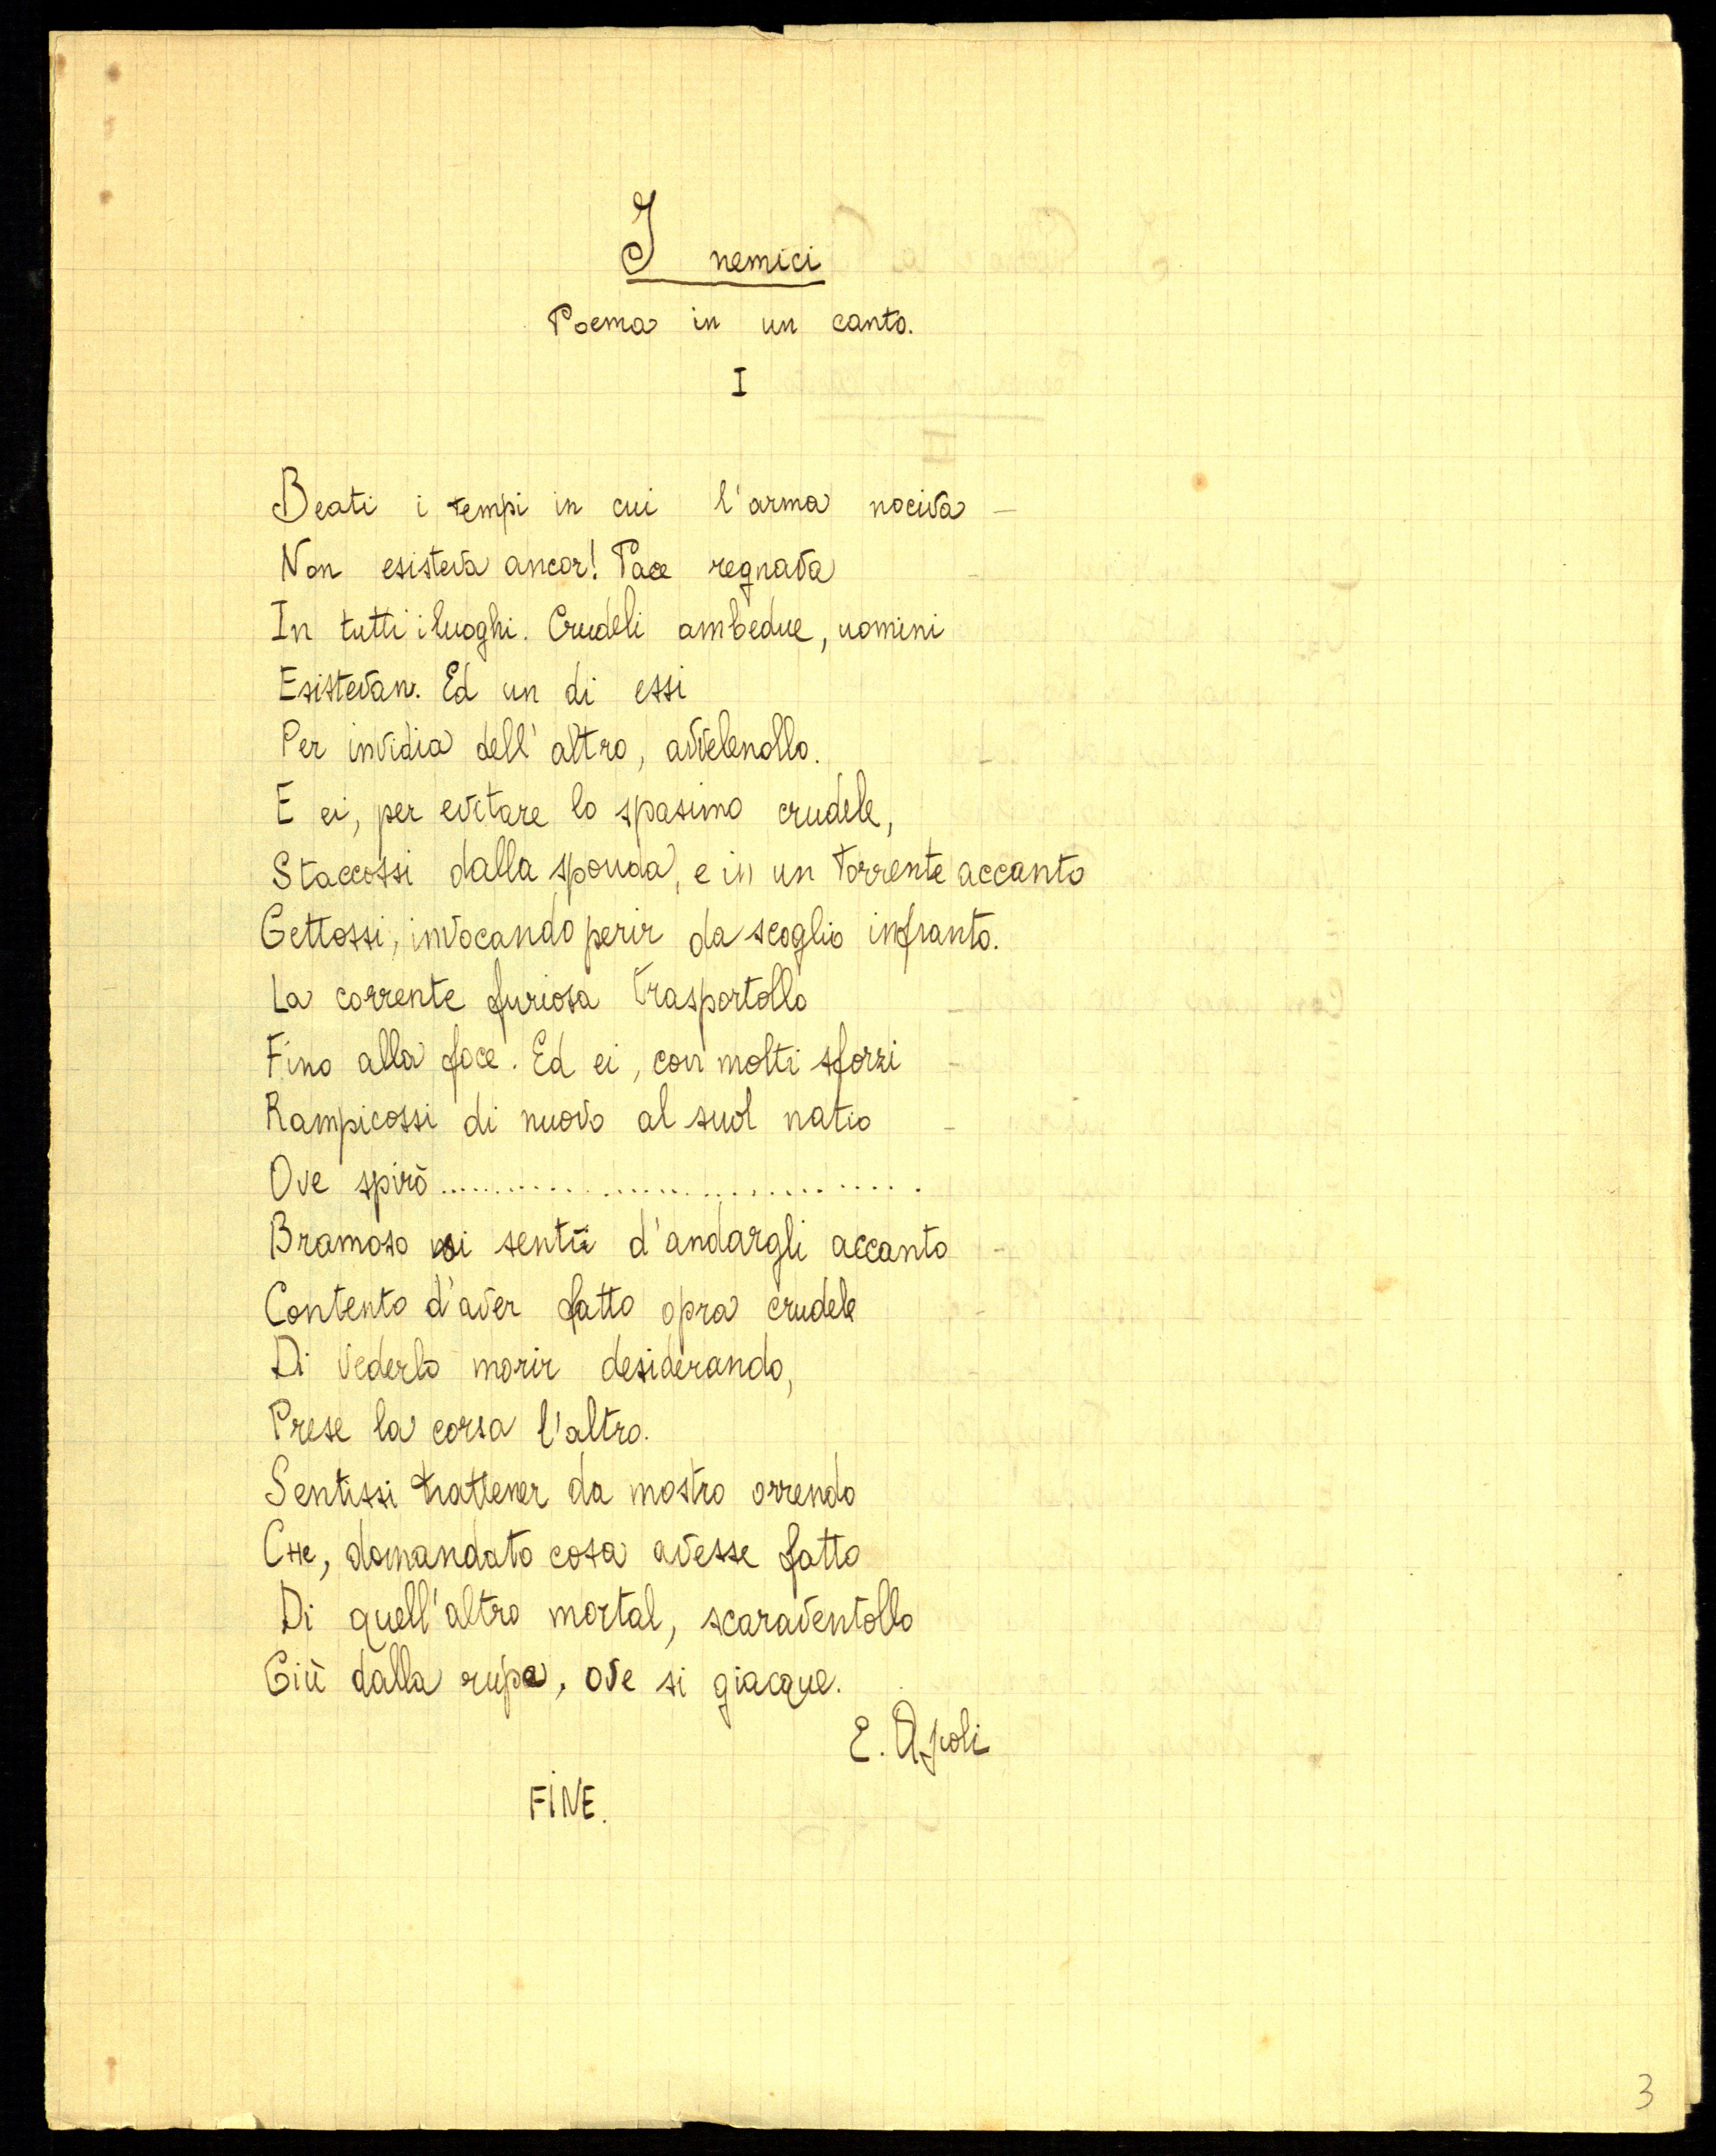 I nemici
Poema in un canto.
I
Beati i tempi in cui l'arma nociva
Non esisteva ancor! Pace regnava
In tutti i luoghi. Crudeli ambedue, uomini
Esistevan. Ed un di essi
Per invidia dell'altro, avvelenollo.
E ei, per evitare lo spasimo crudele,
Staccossi dalla sponda, e in un torrente accanto
Gettossi, invocando perir da scoglio infranto.
La corrente furiosa trasportollo
Fino alla foce. Ed ei, con molti sforzi
Rampicossi di nuovo al suol natio
Ove spirò......................................
Bramoso si sentì d'andargli accanto
Contento d'aver fatto opra crudele
Di vederlo morir desiderando,
Prese la corsa l'altro.
Sentissi trattener da mostro orrendo
Che, domandato cosa avesse fatto
Di quell'altro mortal, scaraventollo
Giù dalla rupe, ove si giacque.
E.
FINE.
3